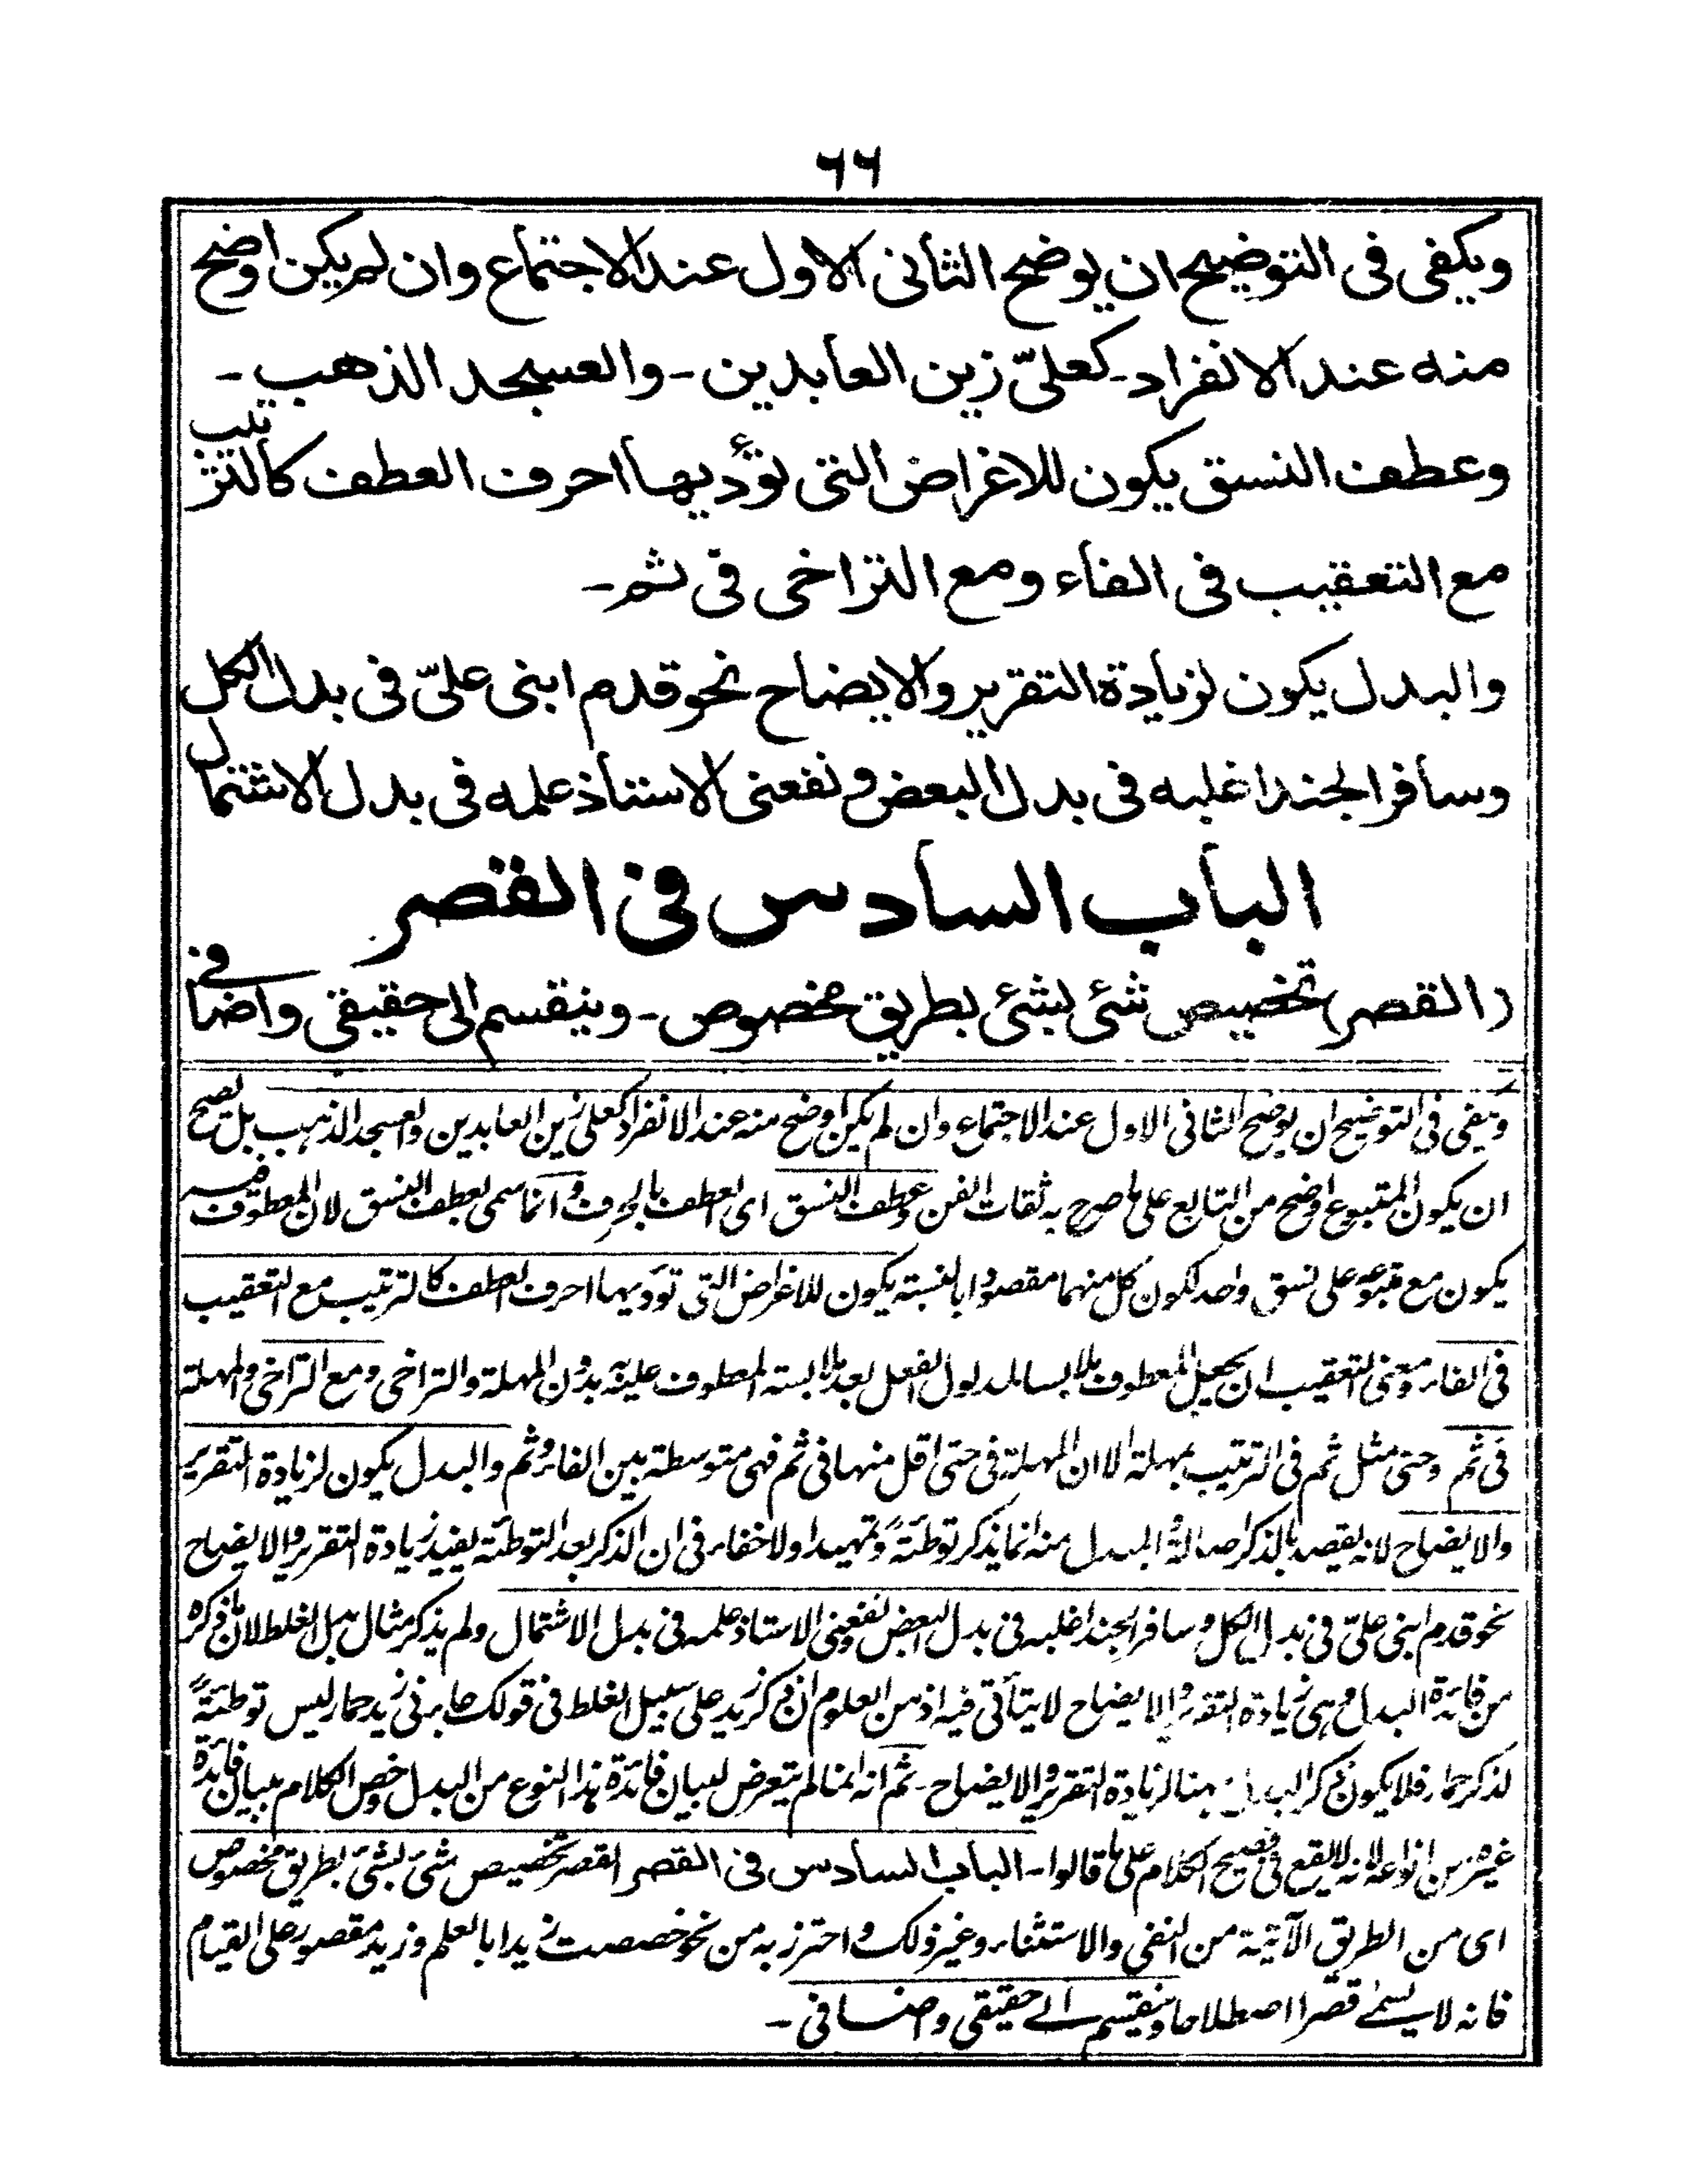 ٦٦
ويكفى فى التوضيح ان يوضح الثانى الاول عند الاجتماع وان لم يكن اوضح
منه عند الانفراد-كعلىّ زين العابدين-والعسجد الذهب-
وعطف النسق يكون للاغراض التى تؤديها احرف العطف كالترتيب
مع التعقيب فى الفاء ومع التراخى فى ثم-
والبدل يكون لزيادة التقرير والايضاح نحو قدم ابنى علىّ فى بدل الكل
وسافر الجند اغلبه فى بدل البعض ونفعنى الاستاذ علمه فى بدل الاشتمال
الباب السادس فى القصر
(القصر) تخصيص شئ بشئ بطريق مخصوص-وينقسم الى حقيقى واضافى
ويكفى فى التوضيح ان يوضح الثانى الاول عند الاجتماع وان لم يكن اوضح منه عند الانفراد كعلى زين العابدين والعسجد الذهب بل يصح
ان يكون المتبوع اوضح من التابع على ما صرح به ثقات الفن وعطف النسق اى العطف بالحرف وانما سمى بعطف النسق لان المعطوف فيه
يكون مع متبوعه على نسق واحد لكون كل منهما مقصودا بالنسبة يكون للاغراض التى تؤديها احرف العطف كالترتيب مع التعقيب
فى الفاء ومعنى التعقيب ان يجعل المعطوف ملابسا لمدلول الفعل بعد ملابسة المعطوف عليه بدون المهلة والتراخى ومع التراخى والمهلة
فى ثم وحتى مثل ثم فى الترتيب بمهلة الا ان المهلة فى حتى اقل منها فى ثم فهى متوسطة بين الفاء وثم والبدل يكون لزيادة التقرير
والايضاح لانه يقصد بالذكر اصالة والمبدل منه انما يذكر توطئة وتمهيدا ولا خفاء فى ان الذكر بعد التوطئة يفيد زيادة التقرير والايضاح
نحو قدم ابنى علىّ فى بدل الكل وسافر الجند اغلبه فى بدل البعض ونفعنى الاستاذ علمه فى بدل الاشتمال ولم يذكر مثال بدل الغلط لان ما ذكره
من فائدة البدل وهى زيادة التقرير والايضاح لا يتأتى فيه اذ من المعلوم ان ذكر زيد على سبيل الغلط فى قولك جاءنى زيد حمار ليس توطئة
لذكر حمار فلا يكون ذكر البدل هنا لزيادة التقرير والايضاح-ثم انه انما لم يتعرض لبيان فائدة هذا النوع من البدل وخص الكلام ببيان فائدة
غيره من انواعه لانه لا يقع فى فصيح الكلام على ما قالوا-الباب السادس فى القصر القصر تخصيص شئ بشئ بطريق مخصوص
اى من الطريق الآتية من النفى والاستثناء وغير ذلك واحترز به من نحو خصصت زيدا بالعلم وزيد مقصور على القيام
فانه لا يسمى قصرا اصطلاحا وينقسم الى حقيقى واضافى-